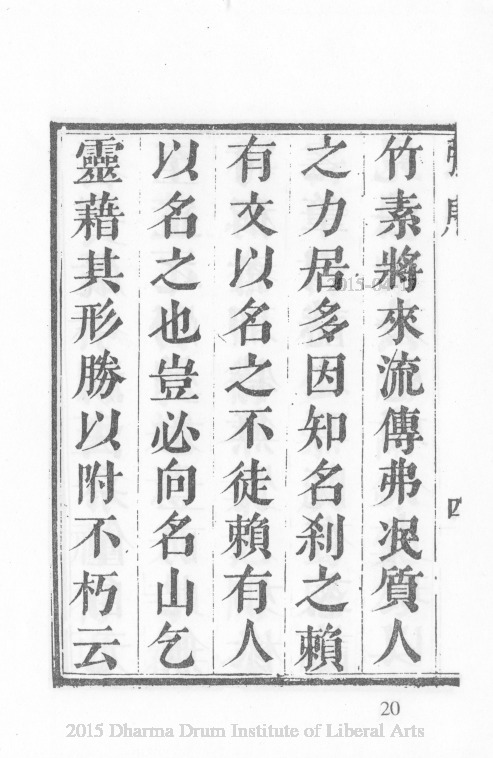 竹素將來流傳弗冺質人
之力居多因知名刹之賴
有文以名之不徒賴有人
以名之也豈必向名山乞
靈藉其形勝以附不朽云
20
2015 Dharma Drum Institute of Liberal Arts